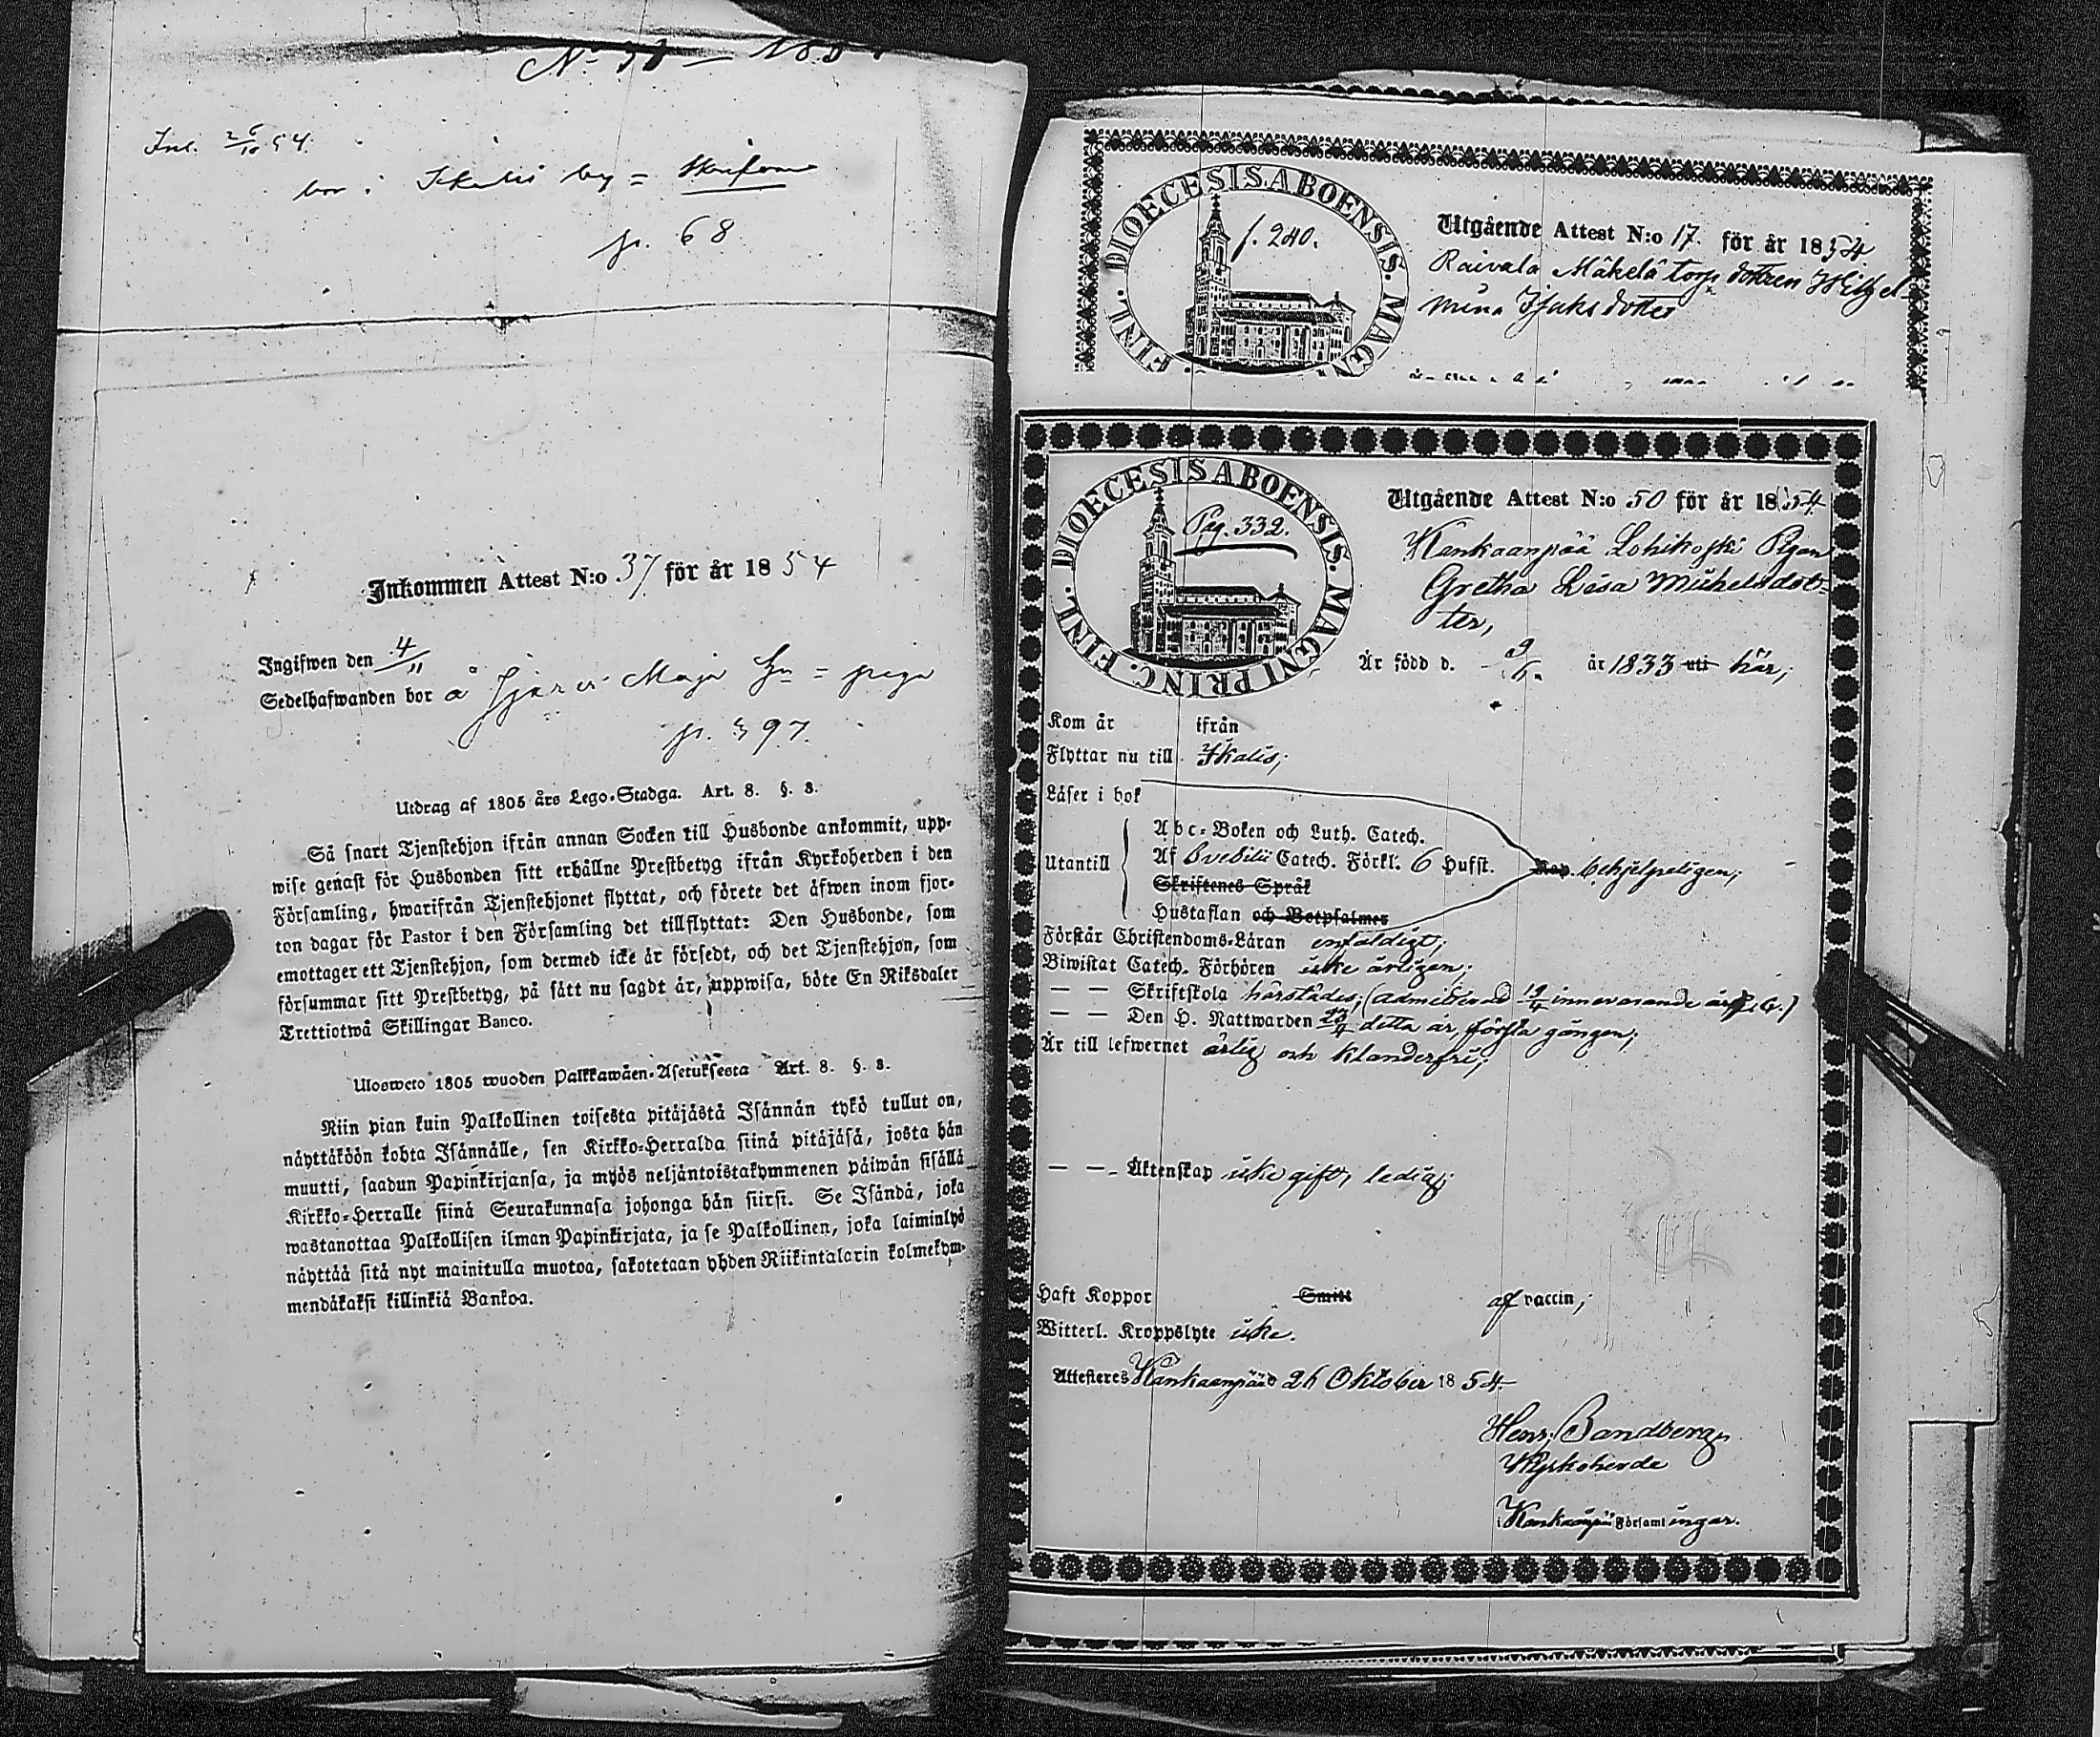 Inl. 26/10 54.
bor i Ikalis by =
p. 68
Inkommen Attest N:o 37 för år 1854
Ingifwen den 4/11
Sedelhafwanden bor å Maja = piga
p. 397.
Utdrag af 1805 års Lego-Stadga. Art. 8. §. 8.
Så snart Tjenstehjon ifrån annan Socken till Husbonde ankommit, upp-
wise genast för Husbonden sitt erhållne Prestbetyg ifrån Kyrkoherden i den
Församling, hwarifrån Tjenstehjonet flyttat, och förete det åfwen inom fjor-
ton dagar för Pastor i den Församling det tillflyttat: Den Husbonde, som
emottager ett Tjenstehjon, som dermed icke är försedt, och det Tjenstehjon, som
försummar sitt Prestbetyg, på sätt nu sagdt är, uppwisa, böte En Riksdaler
Trettiotwå Skillingar Banco.
Ulosweto 1805 wuoden Palkkawäen-Asetuksesta Art. 8. §. 8.
Niin pian kuin Palkollinen toisesta pitäjästä Isännän tykö tullut on,
näyttäköön kohta Isännälle, sen Kirkko-Herralda siinä pitäjäsä, josta hän
muutti, saadun Papinkirjansa, ja myös neljäntoistakymmenen päiwän sisällä
Kirkko-Herralle siinä Seurakunnasa johonga hän siirsi. Se Isändä, joka
wastanottaa Palkollisen ilman Papinkirjata, ja se Palkollinen, joka laiminlyö
näyttää sitä nyt mainitulla muotoa, sakotetaan yhden Riikintalarin kolmekym-
mendäkaksi killinkiä Bankoa.
DIOECESIS ABOENSIS. MAGN FINL.
f. 240.
Utgående Attest N:o 17. för år 1854
Raivala Mäkelä torp dottren Wilhel-
mina Isaksdotter
DIOECESIS ABOENSIS. MAGNI PRINC. FINL.
Pag. 332.
Utgående Attest N:o 50 för år 1854
Kankaanpää Lohikoski Pigan
Gretha Lisa Michelsdot=
ter,
Är född d. år 1833 uti här;
Kom år ifrån
Flyttar nu till Ikalis;
Läser i bok
Utantill
Abc-Boken och Luth. Catech.
Af Svebilii Catech. Förkl. 6 Hufst. behjelpeligen;
Skriftenes Språk
Hustaflan och Botpsalmer
Förstår Christendoms-Läran enfaldigt;
Biwistat Catech. Förhören icke årligen;
— — Skriftskola härstädes; (admitterad 19/4 innevarande år
— — Den H. Nattwarden 23/4 detta år, första gången;
Är till lefwernet ärlig och klanderfri;
— — Äktenskap icke gift, ledig;
Haft Koppor Smitt af vaccin;
Witterl. Kroppslyte icke.
Attesteres Kankaanpää d 26 Oktober 1854
Henr. Sandberg
Kyrkoherde
i Kankaanpää Församlingar.